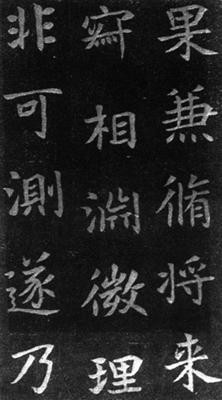 果兼脩将来
相渊微理
非可測遂乃